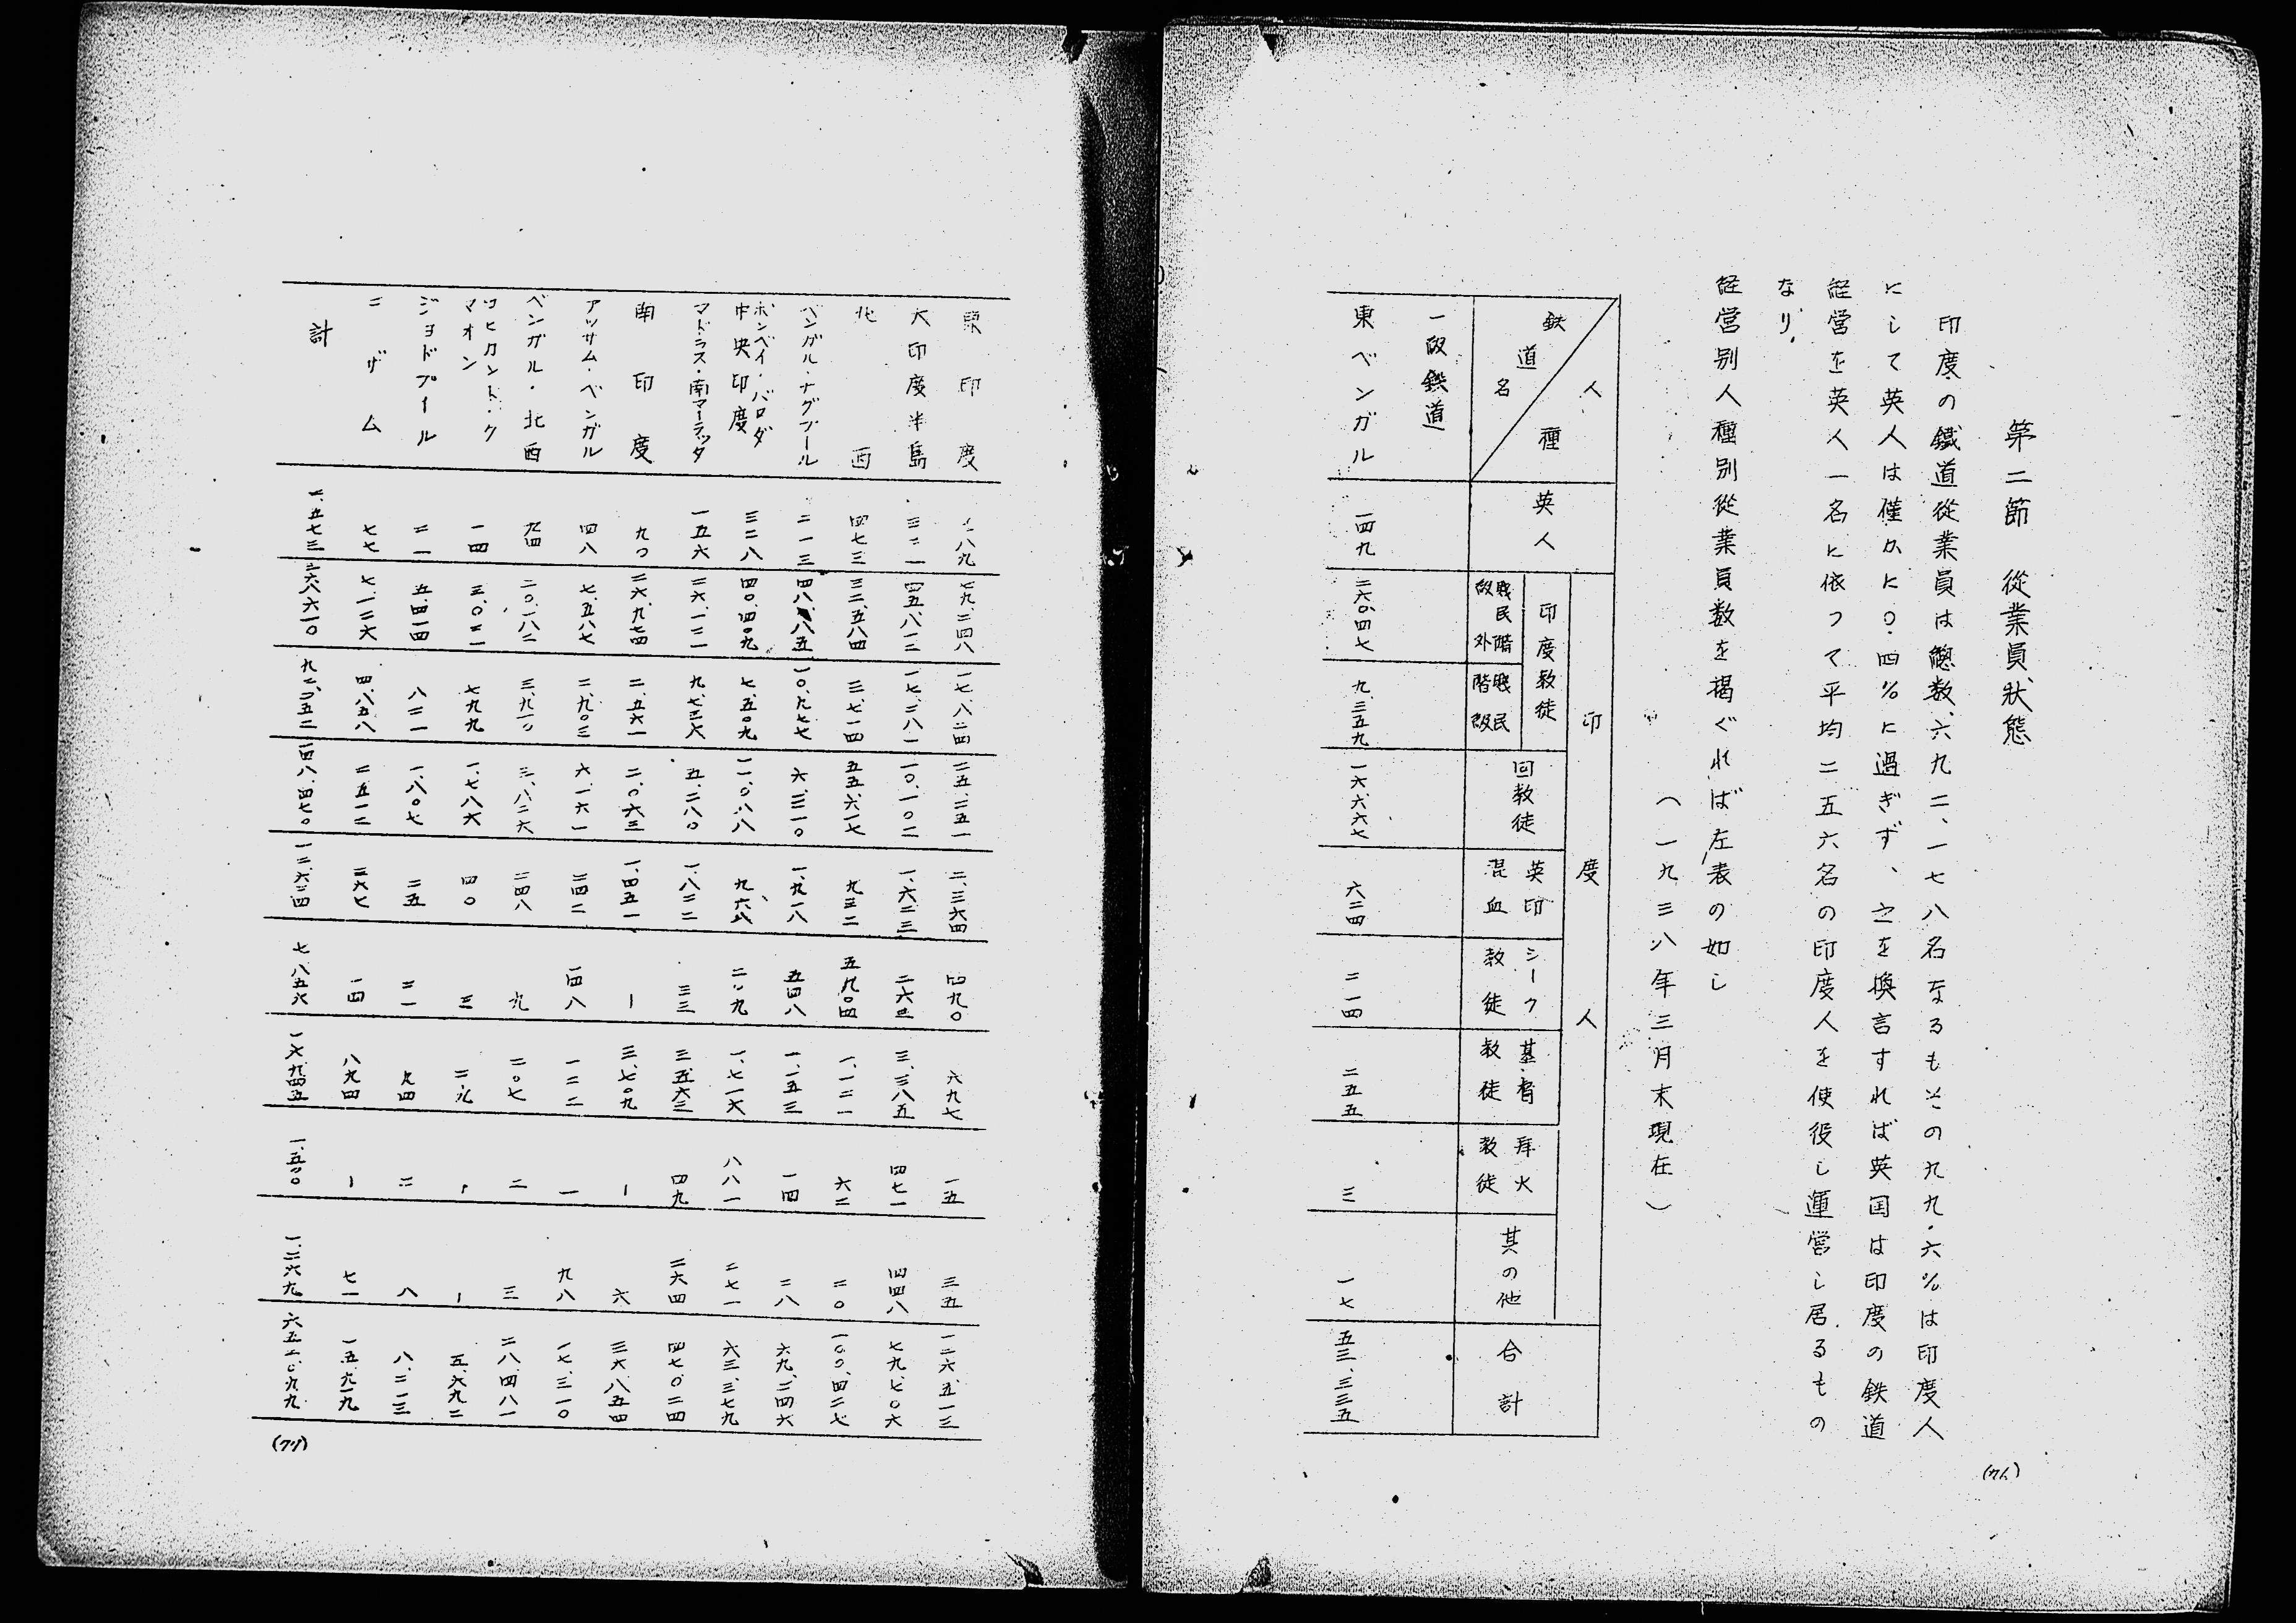 第二節　従業員状態
印度の鐵道従業員は總数六九二、一七八名なるもその九九・六％は印度人
にして英人は僅かに〇・四％に過ぎず、之を換言すれば英国は印度の鉄道
経営を英人一名に依つて平均二五六名の印度人を使役し運営し居るもの
なり、
経営別人種別従業員数を掲ぐれば左表の如し
（一九三八年三月末現在）
人種
鉄道名
英人
印度人
印度教徒
賎民階級外
賎民階級
回教徒
英印混血
シーク教徒
基督教徒
拝火教徒
其の他
合計
一般鉄道
東ベンガル　一四九　二六〇四七　九、三五九　一六、六六七　六三四　二一四　二五五　三　一七　五三、三三五
(76)
東印度　七九、二四八　一七、八二四　二五、三五一　二、三六四　四九〇　六九七　一五　三五　一二六、五一三
大印度半島　四五、八一三　一七、二八一　一〇、一〇二　一、六二三　二六三　三、三八五　四七一　四四八　七九、七〇六
北西　四七三　三二、五八四　三、七一四　五五、六一七　九三二　五九〇四　一、一二一　六二　二〇　一〇〇、四二七
ベンガル・ナグプール　二一三　一〇、九七七　六、三一〇　一、九一八　五四八　一、一五三　一四　二八　六九、二四六
ボンベイ・バロダ中央印度　三二八　四〇、四〇九　七、五〇九　一一、〇八八　九六八　二〇九　一、七一六　八八一　二七一　六三、三七九
マドラス・南マーラッタ　一五六　二六、一三一　九、七三六　五、二八〇　一、八二二　三三　三、五六三　四九　二六四　四七、〇二四
南印度　九〇　二六、九七四　二、五六一　二、〇六三　一、四五一　ー　三、七〇九　ー　六　三六、八五四
アッサム・ベンガル　四八　七、五八七　二、九〇三　六、一六一　二四二　一四八　一二二　一　九八　一七、三一〇
ベンガル・北西　九四　二〇、一八二　三、九一〇　三、八二六　二四八　九　二〇七　二　三　二八、四八一
ロヒカンド・クマオン　一四　三、〇二一　七九九　一、七八六　四〇　三　二九　ー　ー　五、六九二
ジョドプール　二一　五、四一四　八二一　一、八〇七　二五　二一　九四　二　八　八、二一三
ニザム　七七　七、一二六　四、八五八　二五一二　二六七　一四　八九四　ー　七一　一五、八一九
計　二、五七三　九二、二五二　一四八、四七〇　一二、六三四　七、八五六　一六、九四五　一、五〇〇　一、二六九　六五二、〇九九
(77)